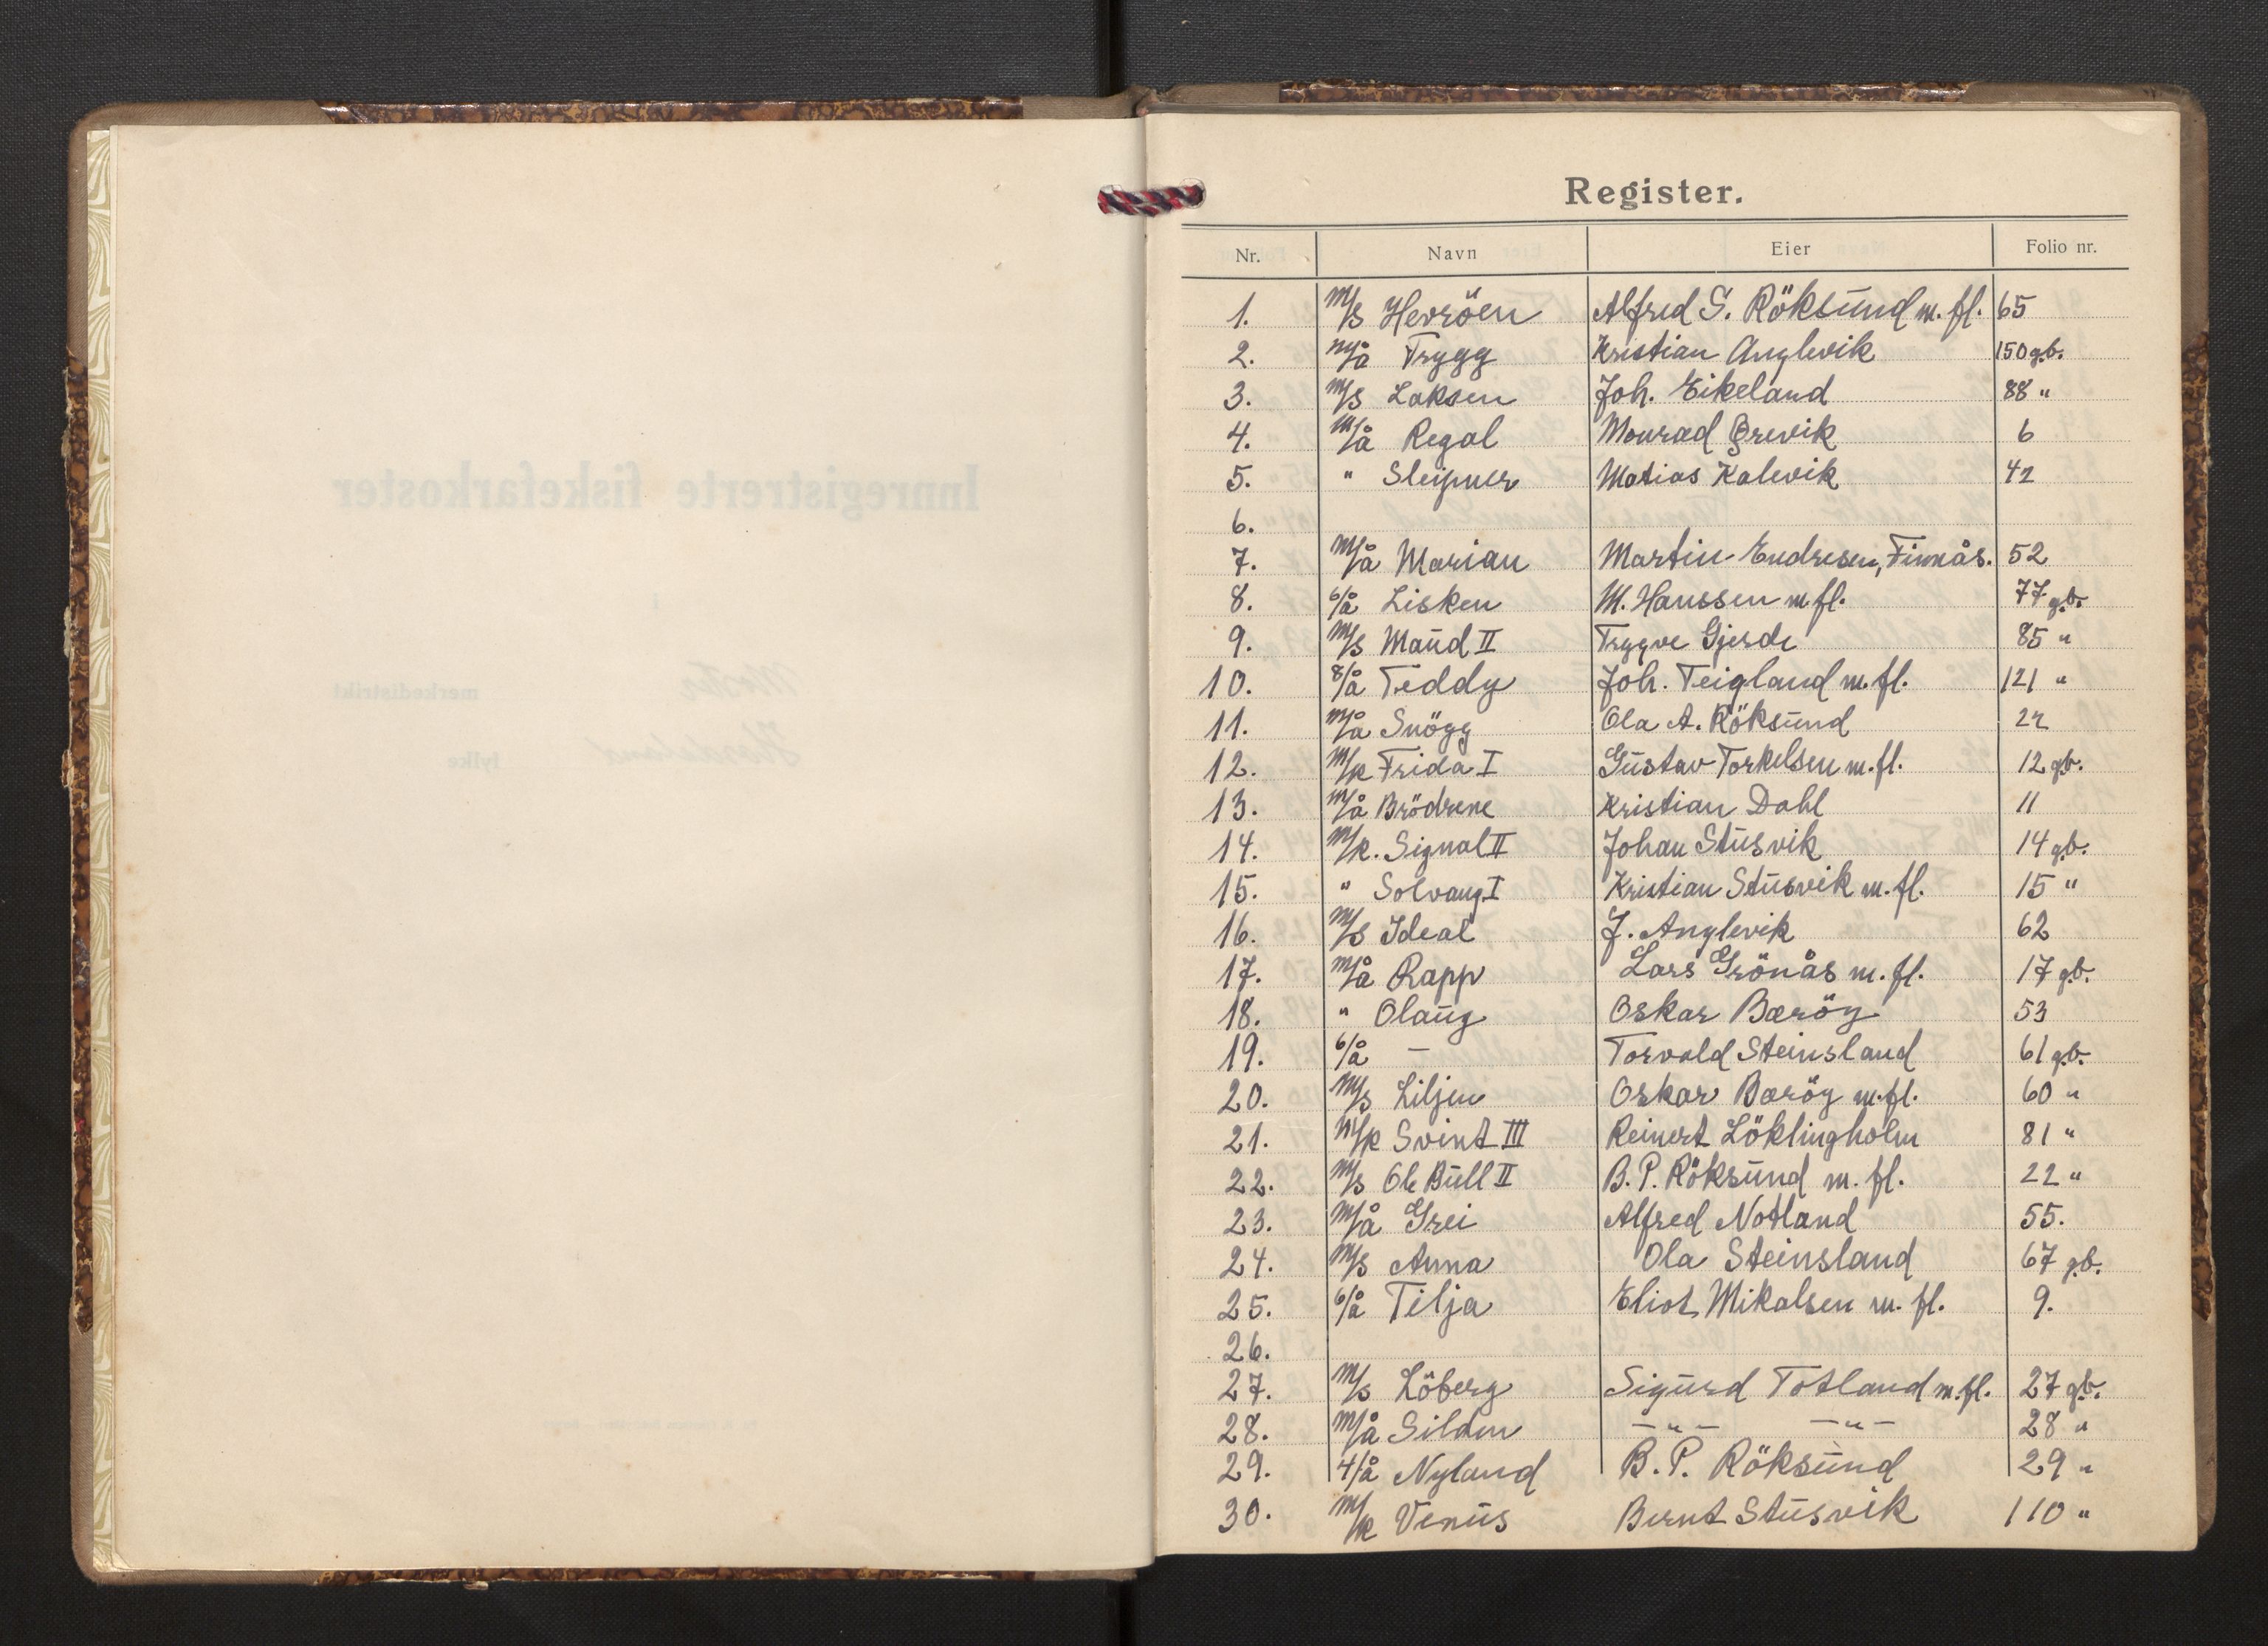 Innregistrerte fiskefarkoster
merkedistrikt
Hordaland fylke
Register.
Nr. Navn Eier Folio nr.
1. m/s Herröen Alfred S. Röksund m. fl. 65
2. m/å Trygg Kristian Anglevik 150 g.b.
3. m/s Laksen Joh. Eikeland 88 "
4. m/å Regal Monrad Grevik 6
5. " Sleipner Matias Kalevik 42
6.
7. m/å Marian Martin Endresen, Finnås. 52
8. 6/å Lisken M. Hanssen m. fl. 77 g.b.
9. m/s Maud II Trygve Gjerde 85 "
10. 8/å Teddy Joh. Teigland m. fl. 121 "
11. m/å Snögg Ola A. Röksund 22
12. m/k Frida I Gustav Torkelsen m. fl. 12 g.b.
13. m/å Brödrene Kristian Dahl 11
14. m/k. Signal II Johan Stusvik 14 g.b.
15. " Solvang I Kristian Stusvik m. fl. 15 "
16. m/s Ideal J. Anglevik 62
17. m/å Rapp Lars Grönås m. fl. 17 g.b.
18. " Olaug Oskar Bæröy 53
19. 6/å — Torvald Steinsland 61 g.b.
20. m/s Liljen Oskar Bæröy m. fl. 60 "
21. m/k Svint III Reinert Löklingholm 81 "
22. m/s Ole Bull II B. P. Röksund m. fl. 22 "
23. m/å Grei Alfred Notland 55.
24. m/s Anna Ola Steinsland 67 g.b.
25. 6/å Tilja Eliot Mikalsen m. fl. 9.
26.
27. m/s Löberg Sigurd Totland m. fl. 27 g.b.
28. m/å Silden — " — — " — 28 "
29. 4/å Nyland B. P. Röksund 29 "
30. m/k Venus Bernt Stusvik 110 "